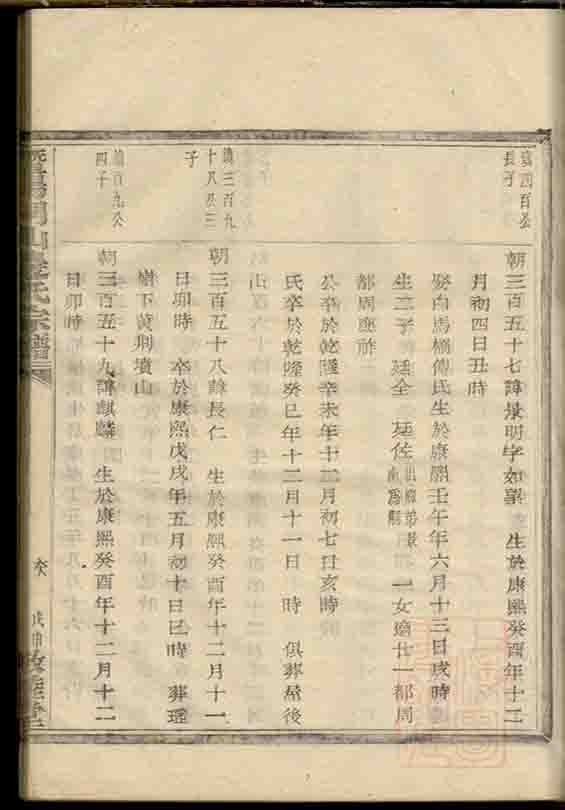 第四百公
長子
朝三百五十七諱景明字如 生於康熙癸酉年十二
月初四日丑時
娶白馬橋傅氏生於康熙壬午年六月十三日戌時
生二子 廷全 廷佐出 弟景 爲 一女適廿一都周
都周 
公卒於乾隆辛未年十二月初七日亥時
氏卒於乾隆癸巳年十二月十一日 時 俱葬屋後
第三百九
十八公三
子
朝三百五十八諱長仁 生於康熙癸酉年十二月十一
日卯時 卒於康熙戊戌年五月初十日巳時 葬瑶
嶺下黄荆墳山
第百九公
四子
朝三百五十九諱麒麟 生於康熙癸酉年十二月十二
日卯時
山 氏宗譜